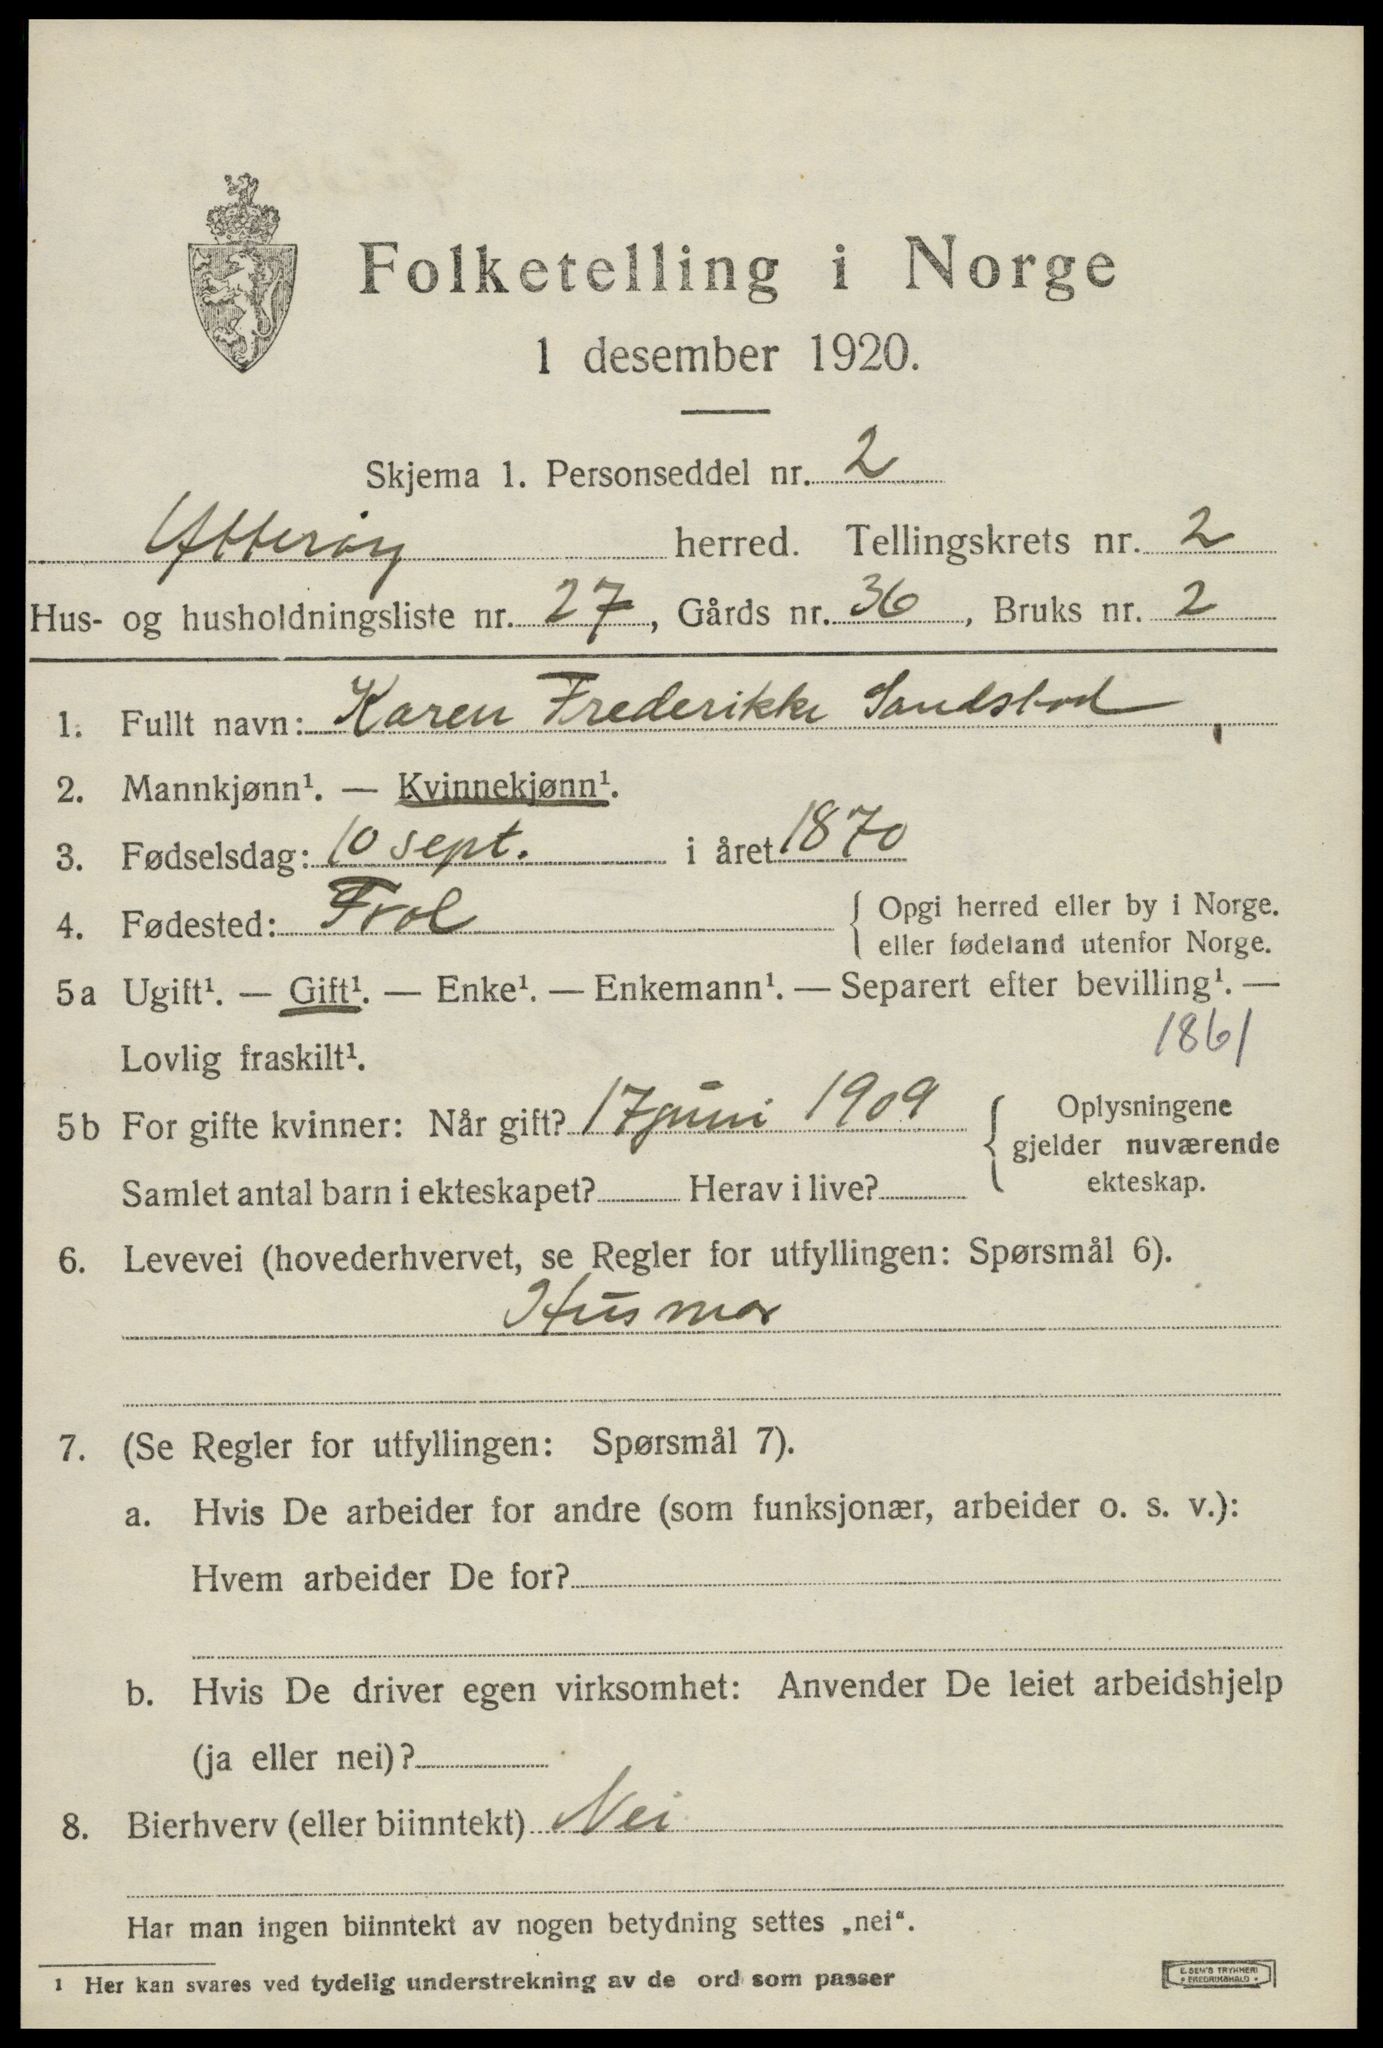 Folketelling i Norge
1 desember 1920.
Skjema 1. Personseddel nr. 2
Ytterøy herred. Tellingskrets nr. 2
Hus- og husholdningsliste nr. 27, Gårds nr. 36, Bruks nr. 2
1. Fullt navn: Karen Frederikke Sandstad
2. Mannkjønn¹. — Kvinnekjønn¹.
3. Fødselsdag: 10 sept. i året 1870
4. Fødested: Frol { Opgi herred eller by i Norge.
eller fødeland utenfor Norge.
5a Ugift¹. — Gift¹. — Enke¹. — Enkemann¹. — Separert efter bevilling¹. —
Lovlig fraskilt¹.
1861
5b For gifte kvinner: Når gift? 17 juni 1909
Samlet antal barn i ekteskapet? Herav i live?
{ Oplysningene
gjelder nuværende
ekteskap.
6. Levevei (hovederhvervet, se Regler for utfyllingen: Spørsmål 6).
Husmor
7. (Se Regler for utfyllingen: Spørsmål 7).
a. Hvis De arbeider for andre (som funksjonær, arbeider o. s. v.):
Hvem arbeider De for?
b. Hvis De driver egen virksomhet: Anvender De leiet arbeidshjelp
(ja eller nei)?
8. Bierhverv (eller biinntekt) Nei
Har man ingen biinntekt av nogen betydning settes „nei“.
1 Her kan svares ved tydelig understrekning av de ord som passer
E. SEM'S TRYKKERI
• FREDRIKSHALD •